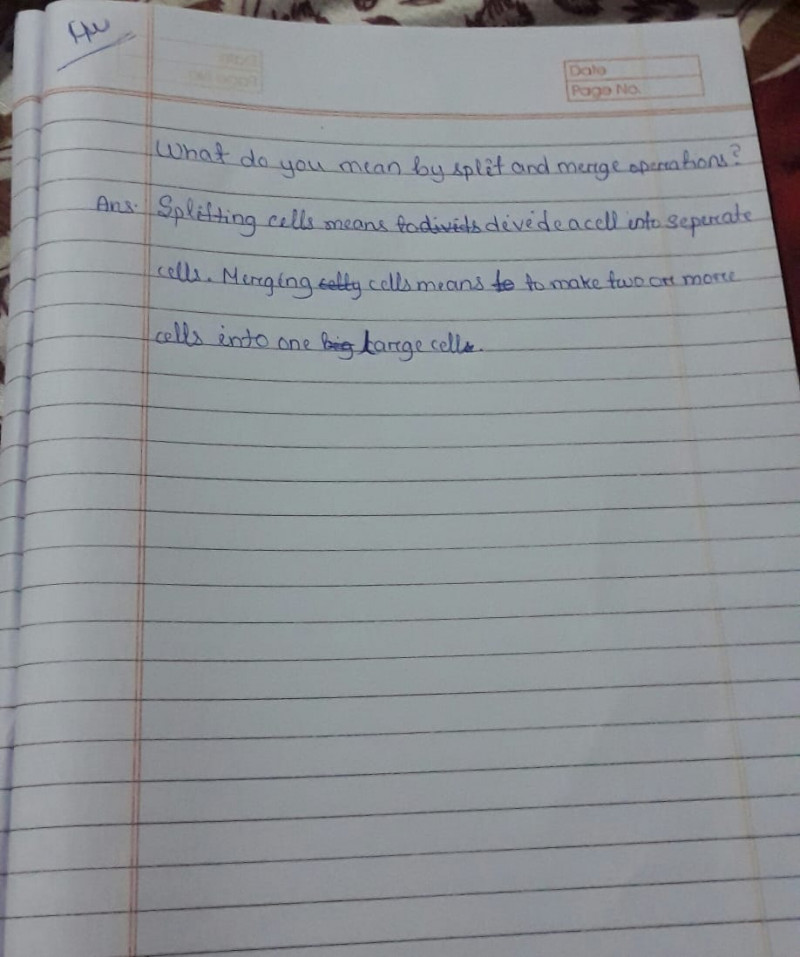 HW
Date
Page No.
What do you mean by split and merge operations?
Ans. Splitting cells means to divids devide a cell into seperate
cells. Merging celly cells means to to make two or more
cells into one big Large cell.